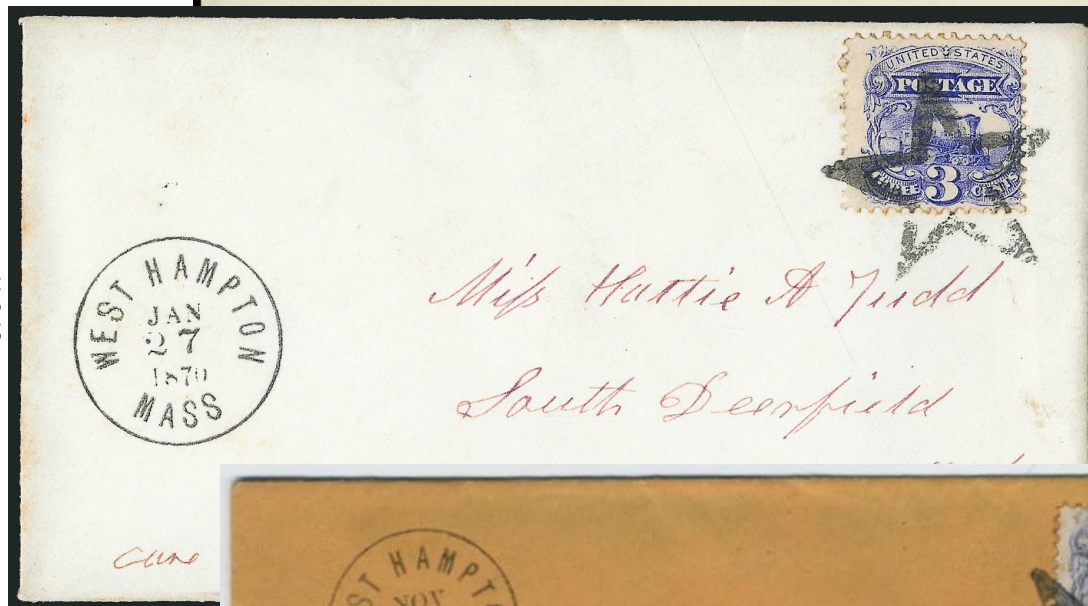 UNITED STATES
POSTAGE
THREE 3 CENTS
WEST HAMPTON
JAN
27
1870
MASS
Miss Hattie A Judd
South Deerfield
HAMPT
NOV